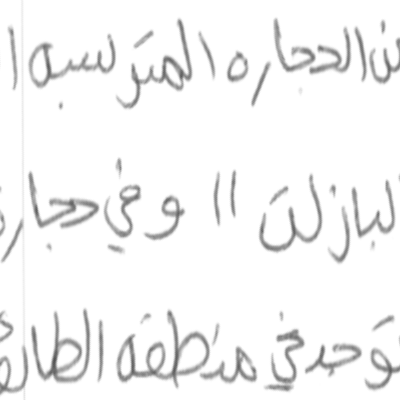 من الحجاره المترسبه ا
البازلت " وفي حجاره
توجد في منطقه الطائف